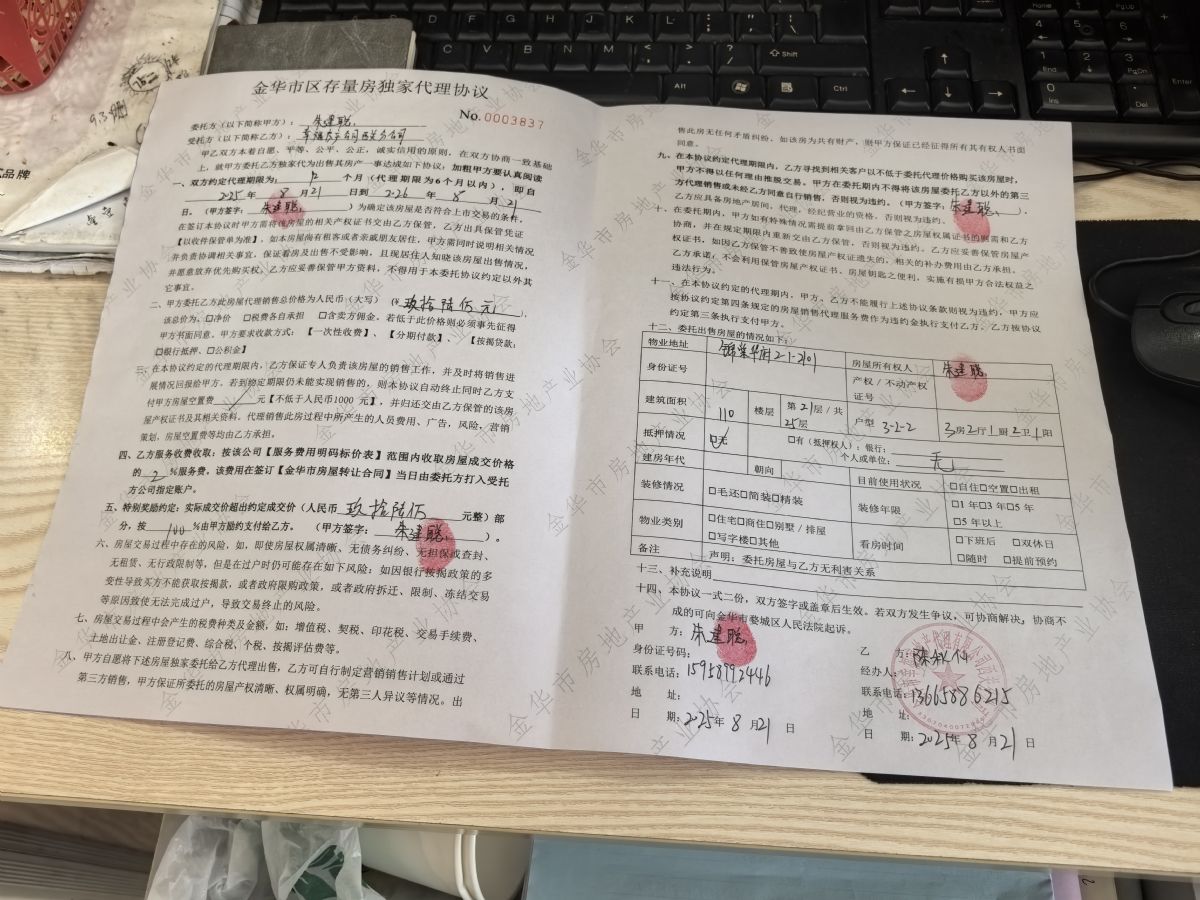 金华市区存量房独家代理协议
No.0003837
委托方（以下简称甲方）：朱建聪
受托方（以下简称乙方）：
甲乙双方本着自愿、平等、公平、公正，诚实信用的原则，在双方协商一致基础
上，就甲方委托乙方独家代为出售其房产一事达成如下协议：加粗甲方要认真阅读
一、双方约定代理期限为：12个月（代理期限为6个月以内），即自
2025年8月21日到2026年8月21
日。（甲方签字：朱建聪）为确定该房屋是否符合上市交易的条件，
在签订本协议时甲方需将该房屋的相关产权证书交由乙方保管，乙方出具保管凭证
【以收件保管单为准】，如本房屋尚有租客或者亲戚朋友居住，甲方需同时说明相关情况
并负责协调相关事宜，保证看房及出售不受影响，且现居住人知晓该房屋出售情况，
并愿意放弃优先购买权。乙方应妥善保管甲方资料，不得用于本委托协议约定以外其
它事宜。
二、甲方委托乙方此房屋代理销售总价格为人民币（大写）（¥玖拾陆佰元），
该总价为：□净价 □税费各自承担 □含卖方佣金。若低于此价格则必须事先征得
甲方书面同意。甲方要求收款方式：【一次性收费】、【分期付款】、【按揭贷款：
□银行抵押、□公积金】
三、在本协议约定的代理期限内，乙方保证专人负责该房屋的销售工作，并及时将销售进
展情况回报给甲方。若到约定期限仍未能实现销售的，则本协议自动终止同时乙方支
付甲方房屋空置费 元【不低于人民币1000元】，并归还交由乙方保管的该房
屋产权证书及其相关资料。代理销售此房过程中所产生的人员费用、广告，风险，营销
策划、房屋空置费等均由乙方承担。
四、乙方服务收费收取：按该公司【服务费用明码标价表】范围内收取房屋成交价格
的2%服务费，该费用在签订【金华市房屋转让合同】当日由委托方打入受托
方公司指定账户。
五、特别奖励约定：实际成交价超出约定成交价（人民币玖拾陆佰元整）部
分，按100%由甲方励约支付给乙方。（甲方签字：朱建聪）。
六、房屋交易过程中存在的风险，如，即使房屋权属清晰、无债务纠纷、无担保或查封、
无租赁、无行政限制等，但是在过户时仍可能存在如下风险：如因银行按揭政策的多
变性导致买方不能获取按揭款，或者政府限购政策，或者政府拆迁、限制、冻结交易
等原因致使无法完成过户，导致交易终止的风险。
七、房屋交易过程中会产生的税费种类及金额，如：增值税、契税、印花税、交易手续费、
土地出让金、注册登记费、综合税、个税、按揭评估费等。
八、甲方自愿将下述房屋独家委托给乙方代理出售，乙方可自行制定营销销售计划或通过
第三方销售，甲方保证所委托的房屋产权清晰、权属明确，无第三人异议等情况。出
售此房无任何矛盾纠纷，如该房为共有财产，则甲方保证已经征得所有其有权人书面
同意。
九、在本协议约定代理期限内，乙方寻找到相关客户以不低于委托代理价格购买该房屋时，
甲方不得以任何理由推脱交易。甲方在委托期内不得将该房屋委托乙方以外的第三
方代理销售或未经乙方同意自行销售，否则视为违约。（甲方签字：朱建聪）。
乙方应具备房地产居间、代理、经纪营业的资格，否则视为违约。
十、在委托期内，甲方如有特殊情况需提前拿回由乙方保管之房屋权属证书的则需和乙方
协商，并在规定期限内重新交由乙方保管，否则视为违约。乙方应妥善保管房屋产
权证书，如因乙方保管不善致使房屋产权证遗失的，相关的补办费用由乙方承担。
乙方承诺：不会利用保管房屋产权证书、房屋钥匙之便利，实施有损甲方合法权益之
违法行为。
十一、在本协议约定的代理期内，甲方、乙方不能履行上述协议条款则视为违约，甲方应
按协议约定第四条规定的房屋销售代理服务费作为违约金执行支付乙方，乙方按协议
约定第三条执行支付甲方。
十二、委托出售房屋的情况如下：
物业地址 锦棠华府2-1-2101 房屋所有权人 朱建聪
身份证号 产权/不动产权证号
建筑面积 110 楼层 第21层/共25层 户型 3-2-2 3房2厅1厨2卫1阳
抵押情况 □无 □有（抵押权人）：银行：
个人或单位：无
建房年代 朝向 目前使用状况 □自住□空置□出租
装修情况 □毛还□简装□精装 装修年限 □1年□3年□5年
□5年以上
物业类别 □住宅□商住□别墅/排屋 看房时间 □下班后 □双休日
□写字楼□其他 □随时 □提前预约
备注 声明：委托房屋与乙方无利害关系
十三、补充说明
十四、本协议一式二份，双方签字或盖章后生效。若双方发生争议，可协商解决，协商不
成的可向金华市婺城区人民法院起诉。
甲 方：朱建聪 乙 方：
身份证号码： 经办人：
联系电话：15958992446 联系电话：13665886215
地 址： 地 址：
日 期：2025年8月21日 日 期：2025年8月21日
金华市房地产业协会